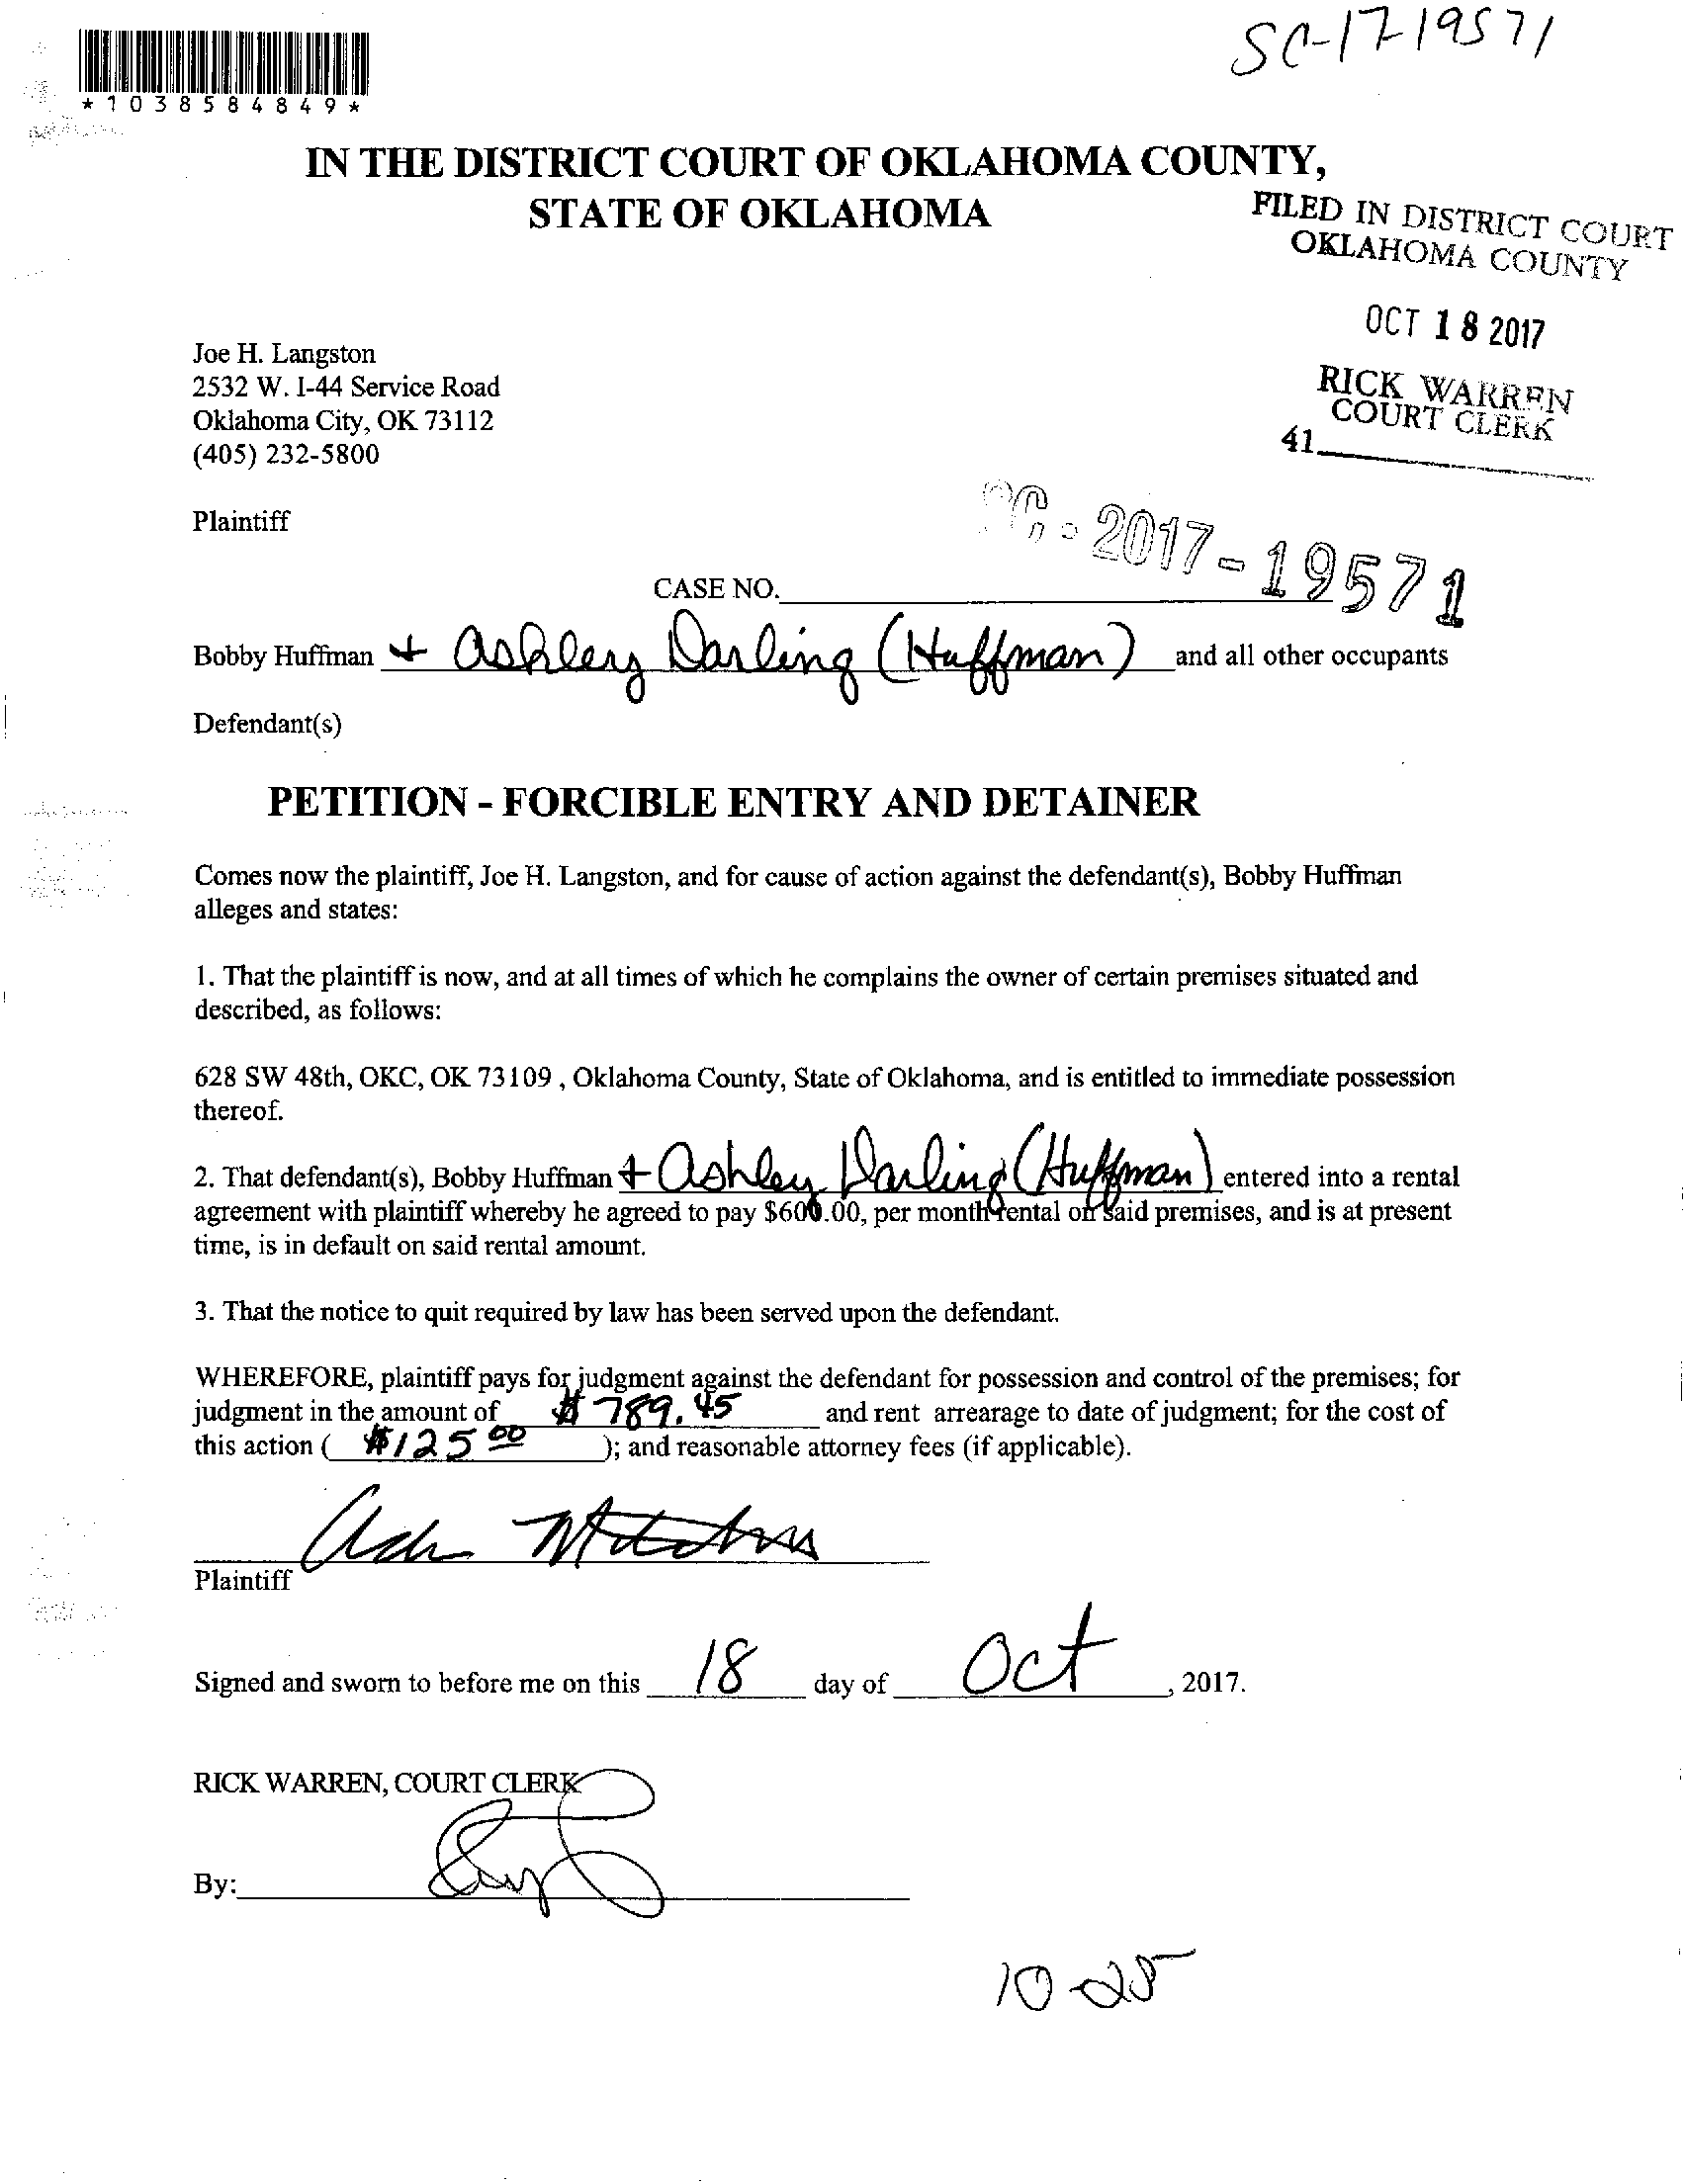 SC-17-19571
*1038584849*
IN THE DISTRICT COURT OF OKLAHOMA COUNTY,
STATE OF OKLAHOMA
FILED IN DISTRICT COURT
OKLAHOMA COUNTY
OCT 18 2017
RICK WARREN
COURT CLERK
41
Joe H. Langston
2532 W. I-44 Service Road
Oklahoma City, OK 73112
(405) 232-5800
Plaintiff
CASE NO. SC-2017-19571
Bobby Huffman + Ashley Darling (Huffman) and all other occupants
Defendant(s)
PETITION - FORCIBLE ENTRY AND DETAINER
Comes now the plaintiff, Joe H. Langston, and for cause of action against the defendant(s), Bobby Huffman
alleges and states:
1. That the plaintiff is now, and at all times of which he complains the owner of certain premises situated and
described, as follows:
628 SW 48th, OKC, OK 73109 , Oklahoma County, State of Oklahoma, and is entitled to immediate possession
thereof.
2. That defendant(s), Bobby Huffman + Ashley Darling (Huffman) entered into a rental
agreement with plaintiff whereby he agreed to pay $600.00, per month rental on said premises, and is at present
time, is in default on said rental amount.
3. That the notice to quit required by law has been served upon the defendant.
WHEREFORE, plaintiff pays for judgment against the defendant for possession and control of the premises; for
judgment in the amount of $789.45 and rent arrearage to date of judgment; for the cost of
this action ( $125 00 ); and reasonable attorney fees (if applicable).
Plaintiff
Signed and sworn to before me on this 18 day of Oct, 2017.
RICK WARREN, COURT CLERK
By:
10-25